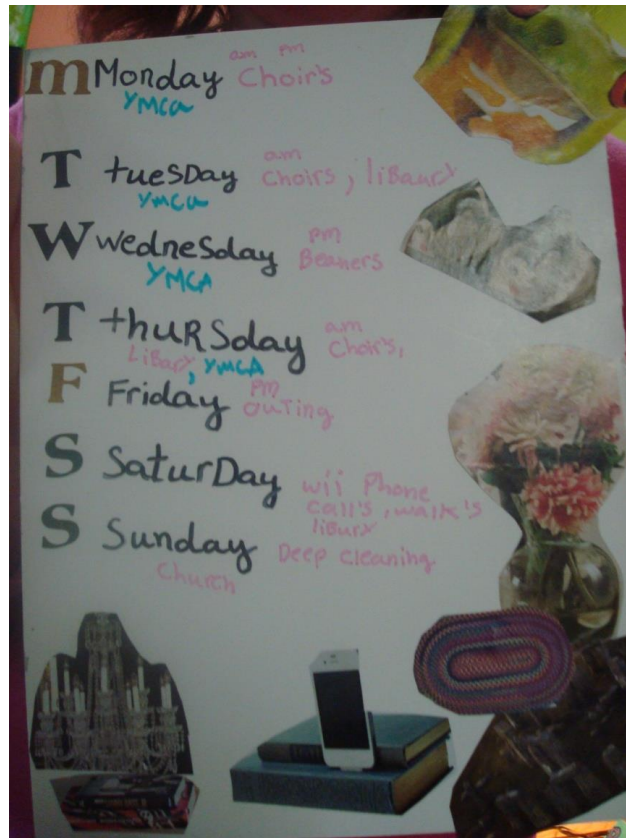 am pm
m Monday Choir's
YMCA
am
T tuesDay Choirs ; libaurx
YMCA
pm
W wedneSday Beaners
YMCA
am
T thuRSday Choir's,
Libary, YMCA
pm
F Friday outing
S SaturDay wii Phone
call's, walk's
liburx
S Sunday Deep cleaning
Church